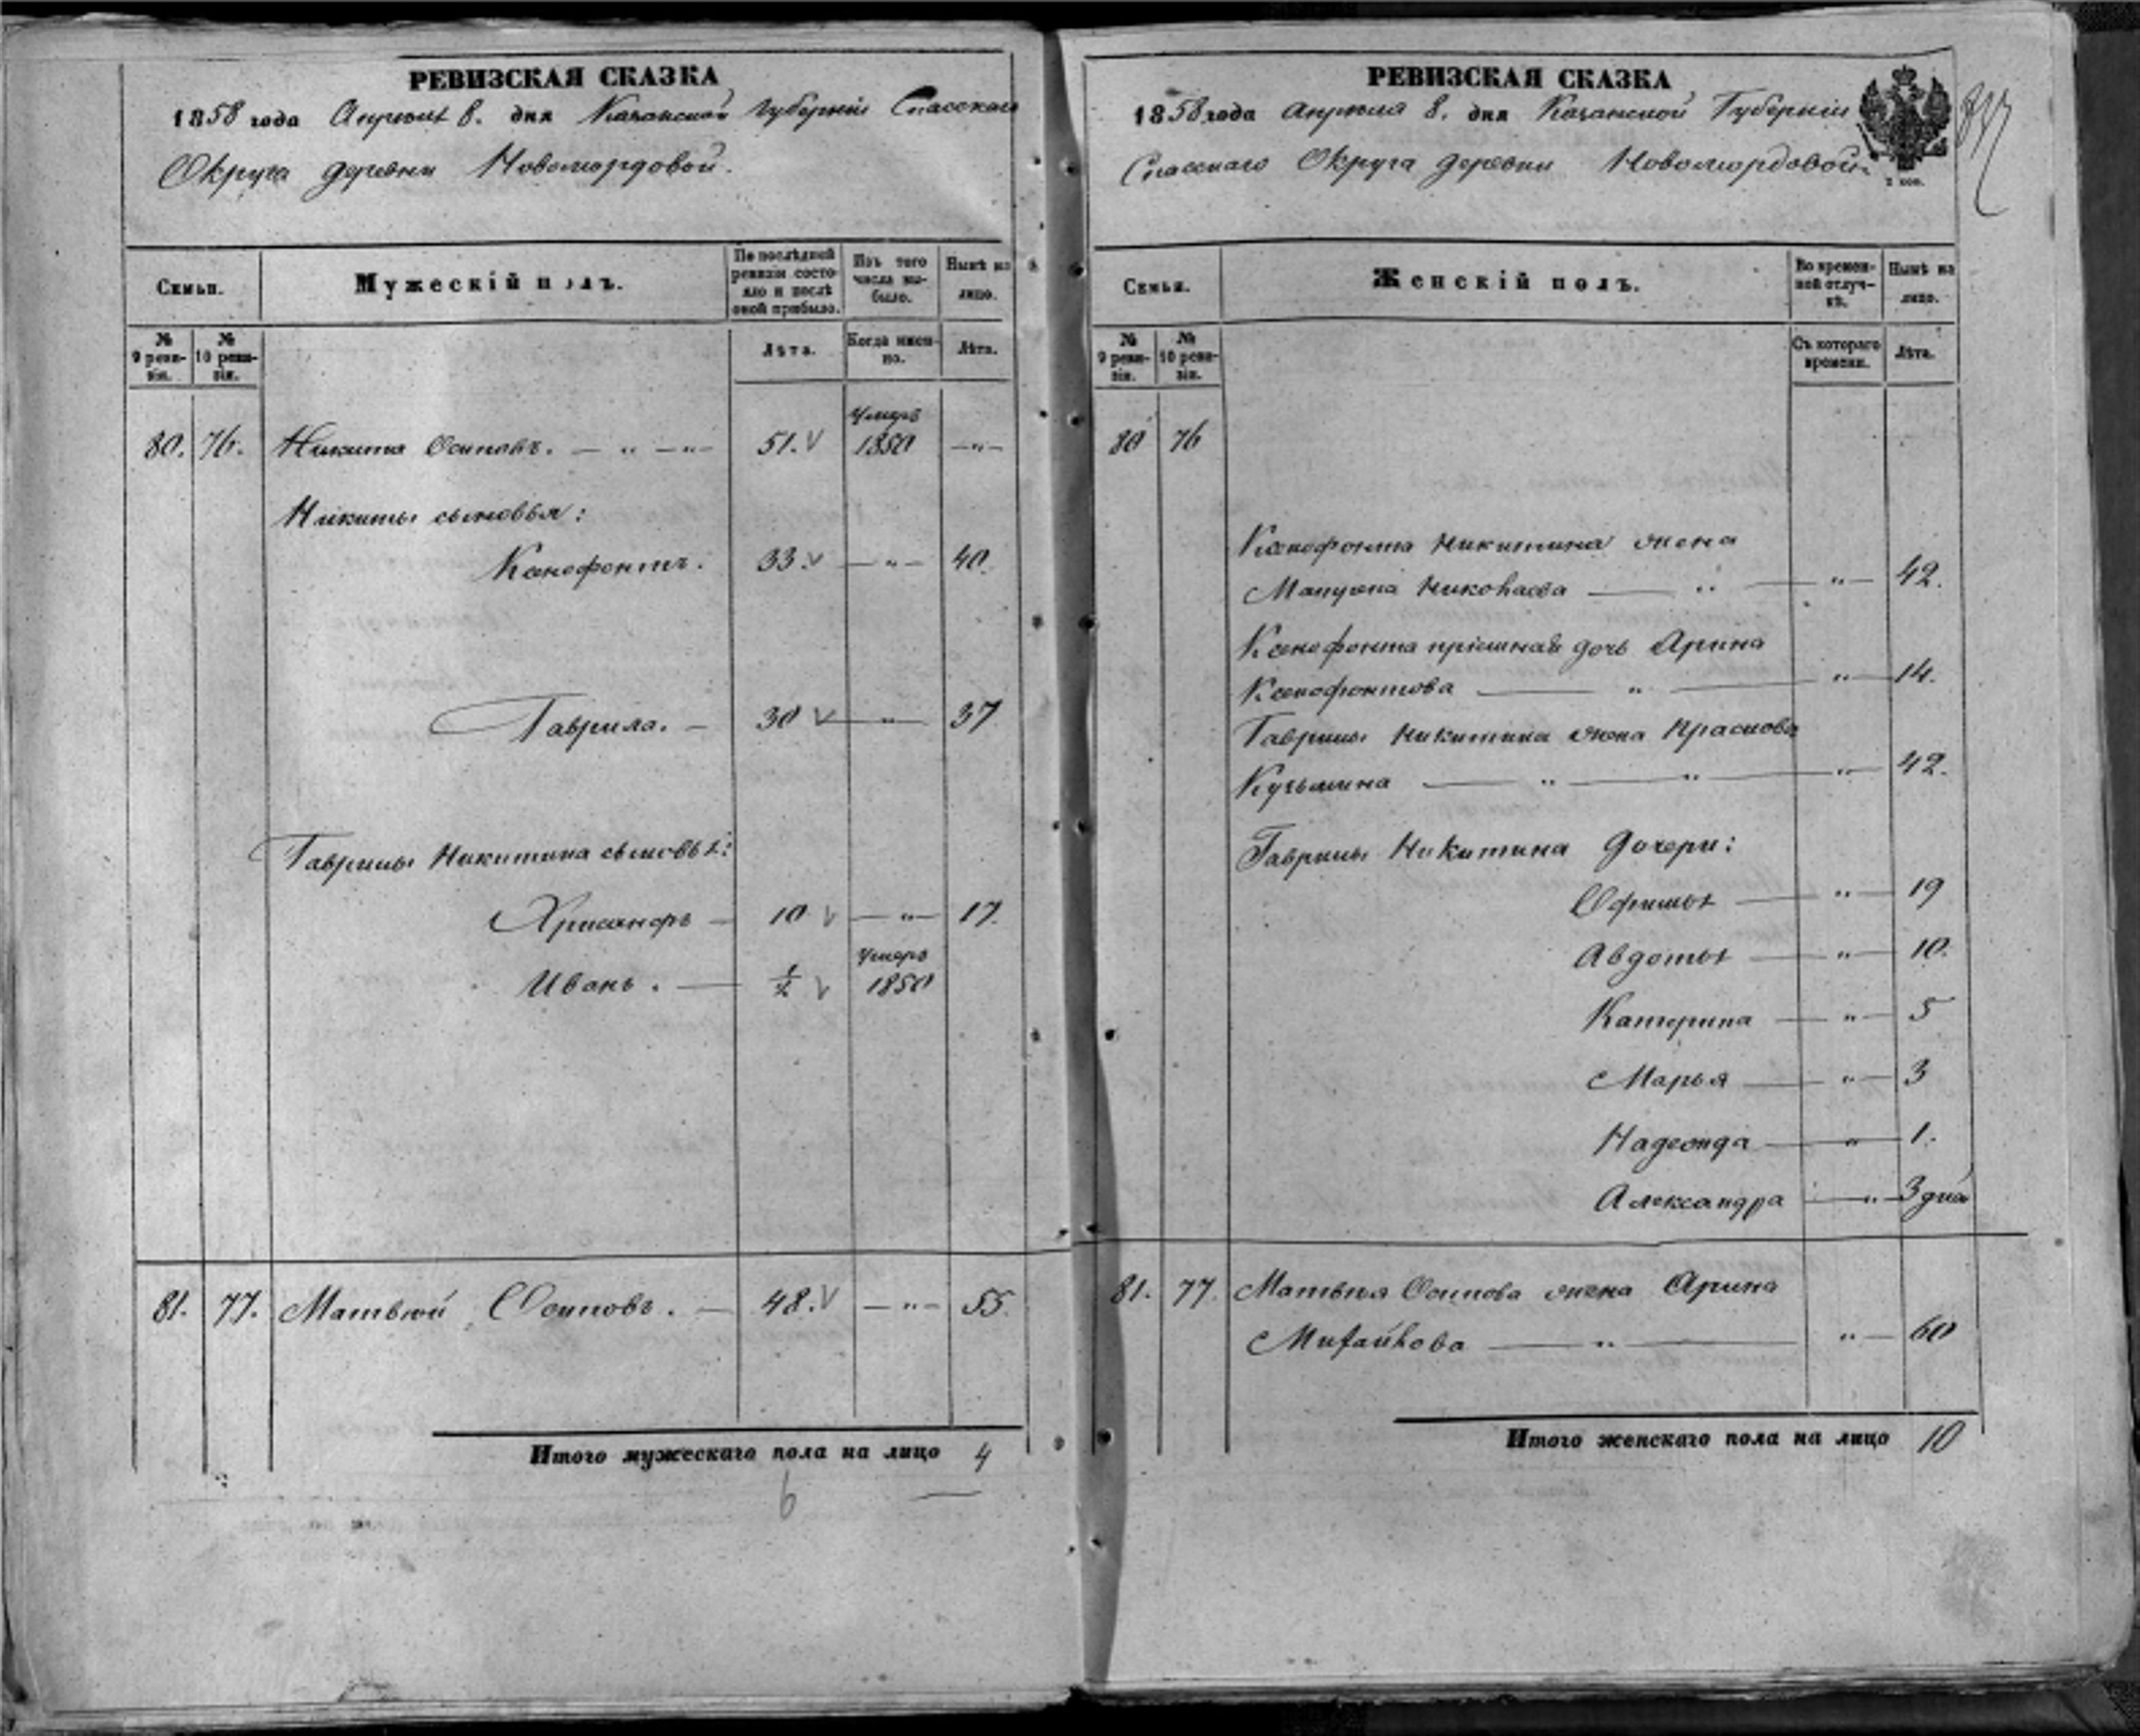 РЕВИЗСКАЯ СКАЗКА
1858 года Апреля 8. дня Казанской Губерніи Спасскаго
Округа деревни Новомордовой.
Семьи.
Мужескій полъ.
По послѣдней ревизіи состояло и послѣ оной прибыло.
Изъ того числа выбыло.
Нынѣ на лицо.
№ 9 ревизіи.
№ 10 ревизіи.
Лѣта.
Когда именно.
Лѣта.
80. 76. Никита Осиповъ. — „ — „ — 51. Умеръ 1850 — „ —
Никиты сыновья:
Ксенофонтъ. 33. — „ — 40.
Гаврила. — 30 — „ — 37
Гаврилы Никитина сыновья:
Хрисанфъ — 10 — „ — 17.
Иванъ. — 1/2 Умеръ 1850
81. 77. Матвѣй Осиповъ. — 48. — „ — 55.
Итого мужескаго пола на лицо 4
6
РЕВИЗСКАЯ СКАЗКА
1858 года Апреля 8. дня Казанской Губерніи
Спасскаго Округа деревни Новомордовой.
2 коп.
Семьи.
Женскій полъ.
Во временной отлучкѣ.
Нынѣ на лицо.
№ 9 ревизіи.
№ 10 ревизіи.
Съ котораго времени.
Лѣта.
80 76
Ксенофонта Никитина жена
Николаева — „ — „ — 42.
Ксенофонта пріемная дочь Арина
Ксенофонтова — „ — „ — 14.
Гаврилы Никитина жена
Кузьмина — „ — „ — „ — 42.
Гаврилы Никитина дочери:
Офимья — „ — 19
Авдотья — „ — 10.
Катерина — „ — 5
Марья — „ — 3
Надежда — „ — 1.
Александра — „ — 3 дня
81. 77. Матвѣя Осипова жена Арина
Михайлова — „ — „ — 60
Итого женскаго пола на лицо 10